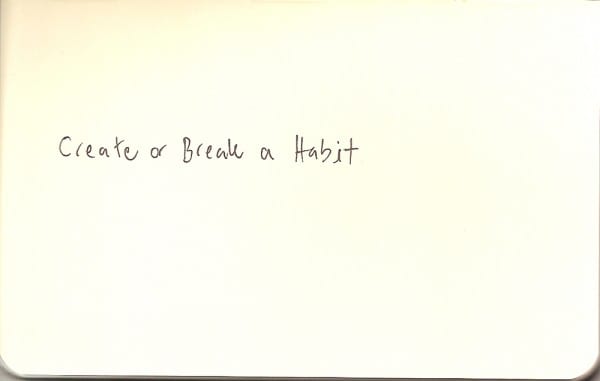 Create or Break a Habit